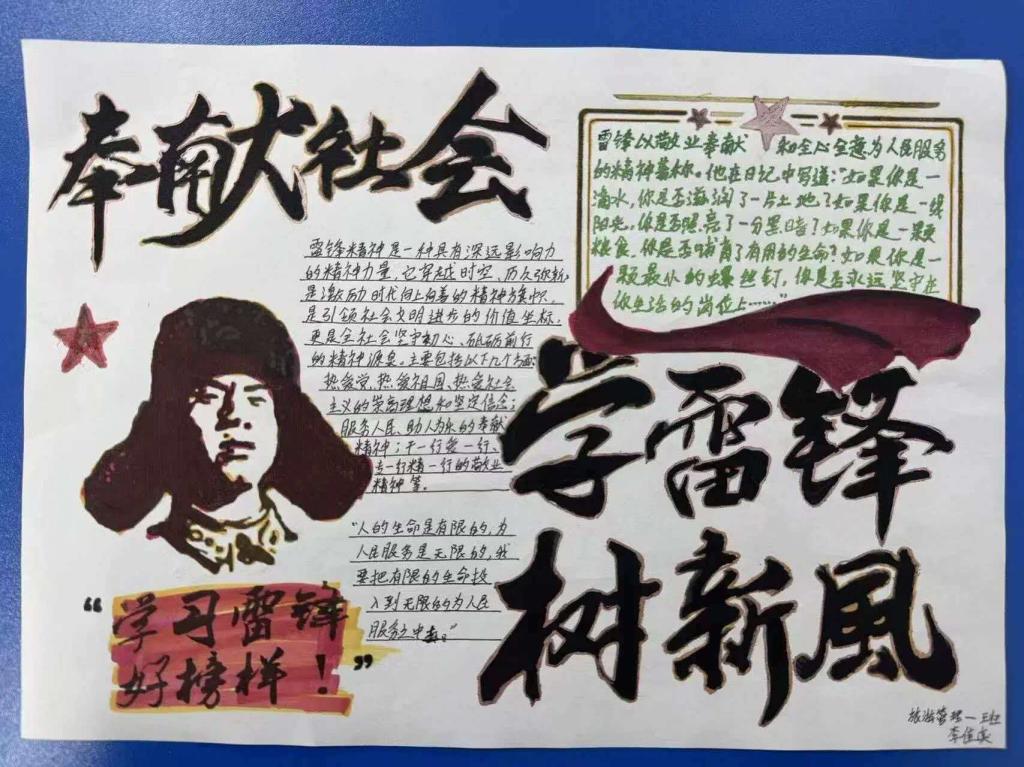 奉献社会
雷锋以敬业奉献 和全心全意为人民服务
的精神著称。他在日记中写道:"如果你是一
滴水,你是否滋润了一片土地?如果你是一线
阳光,你是否照亮了一分黑暗?如果你是一颗
粮食,你是否哺育了有用的生命?如果你是
一颗最小的螺丝钉,你是否永远坚守在
你生活的岗位上……"
雷锋精神是一种具有深远影响力
的精神力量,它穿越时空、历久弥新,
是激励时代向上向善的精神旗帜,
是引领社会文明进步的价值坐标,
更是全社会坚守初心、砥砺前行
的精神源泉。主要包括以下几个方面:
热爱党、热爱祖国、热爱社会
主义的崇高理想和坚定信念;
服务人民、助人为乐的奉献
精神;干一行爱一行、
专一行精一行的敬业
精神等。
"人的生命是有限的,为
人民服务是无限的,我
要把有限的生命投
入到无限的为人民
服务之中去。"
"学习雷锋
好榜样!"
学雷锋
树新風
旅游管理一班
李佳